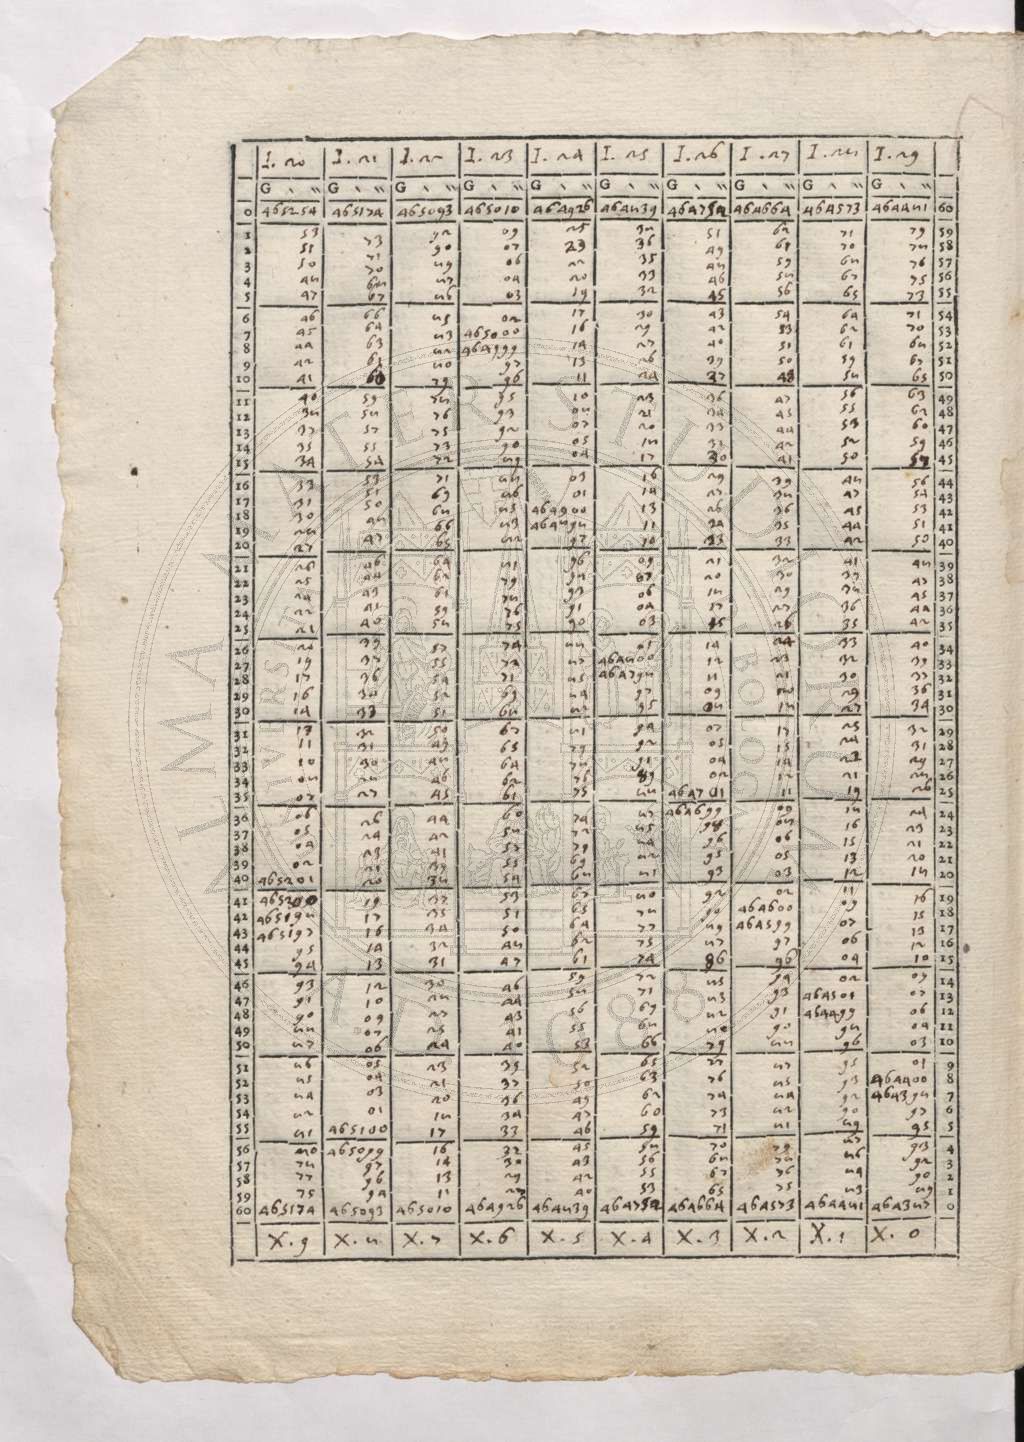 I. 20 I. 21 I. 22 I. 23 I. 24 I. 25 I. 26 I. 27 I. 28 I. 29
G ‵ ‶ G ‵ ‶ G ‵ ‶ G ‵ ‶ G ‵ ‶ G ‵ ‶ G ‵ ‶ G ‵ ‶ G ‵ ‶ G ‵ ‶
0 465254 465174 465093 465010 464926 464839 464752 464664 464573 464481 60
1 53 73 92 09 25 38 51 62 71 79 59
2 51 71 90 07 23 36 49 61 70 78 58
3 50 70 89 06 22 35 48 59 68 76 57
4 48 68 87 04 20 33 46 58 67 75 56
5 47 67 86 03 19 32 45 56 65 73 55
6 46 66 85 02 17 30 43 54 64 71 54
7 45 64 83 465000 16 29 42 53 62 70 53
8 44 63 82 464999 14 27 40 51 61 68 52
9 42 61 80 97 13 26 39 50 59 67 51
10 41 60 79 96 11 24 37 48 58 65 50
11 40 59 78 95 10 23 36 47 56 63 49
12 38 58 76 93 08 21 34 45 55 62 48
13 37 57 75 92 07 20 33 44 53 60 47
14 35 55 73 90 05 18 31 42 52 59 46
15 34 54 72 89 04 17 30 41 50 57 45
16 33 53 71 88 03 16 29 39 48 56 44
17 31 51 69 86 01 14 27 38 47 54 43
18 30 50 68 85 464900 13 26 36 45 53 42
19 28 48 66 83 464898 11 24 35 44 51 41
20 27 47 65 82 97 10 23 33 42 50 40
21 26 46 64 81 96 09 21 32 41 48 39
22 25 44 62 79 94 07 20 30 39 47 38
23 24 43 61 78 93 06 18 29 38 45 37
24 22 41 59 76 91 04 17 27 36 44 36
25 21 40 58 75 90 03 15 26 35 42 35
26 20 39 57 74 88 01 14 24 33 40 34
27 19 37 55 72 87 464800 12 23 32 39 33
28 17 36 54 71 85 464798 11 21 30 37 32
29 16 34 52 69 84 97 09 20 29 36 31
30 14 33 51 68 82 95 08 18 27 34 30
31 13 32 50 67 81 94 07 17 25 32 29
32 11 31 49 65 79 92 05 15 24 31 28
33 10 30 48 64 78 91 04 14 22 29 27
34 08 28 46 62 76 89 02 12 21 28 26
35 07 27 45 61 75 88 464701 11 19 26 25
36 06 26 44 60 74 87 464699 09 18 24 24
37 05 24 42 58 72 85 98 08 16 23 23
38 04 23 41 57 71 84 96 06 15 21 22
39 02 21 39 55 69 82 95 05 13 20 21
40 465201 20 38 54 68 81 93 03 12 18 20
41 465200 19 37 53 67 80 92 02 11 16 19
42 465198 17 35 51 65 78 90 464600 09 15 18
43 465197 16 34 50 64 77 89 464599 07 13 17
44 95 14 32 48 62 75 87 97 06 12 16
45 94 13 31 47 61 74 86 96 04 10 15
46 93 12 30 46 59 72 85 94 02 09 14
47 91 10 28 44 58 71 83 93 464501 07 13
48 90 09 27 43 56 69 82 91 464499 06 12
49 88 07 25 41 55 68 80 90 98 04 11
50 87 06 24 40 53 66 79 88 96 03 10
51 86 05 23 39 52 65 77 87 95 01 9
52 85 04 21 37 50 63 76 85 93 464400 8
53 84 03 20 36 49 62 74 84 92 464398 7
54 82 01 18 34 47 60 73 82 90 97 6
55 81 465100 17 33 46 59 71 81 89 95 5
56 80 465099 16 32 45 58 70 79 87 93 4
57 78 97 14 30 43 56 68 78 86 92 3
58 77 96 13 29 42 55 67 76 84 90 2
59 75 94 11 27 40 53 65 75 83 89 1
60 465174 465093 465010 464926 464839 464752 464664 464573 464481 464387 0
X. 9 X. 8 X. 7 X. 6 X. 5 X. 4 X. 3 X. 2 X. 1 X. 0
ALMA MATER STUDIORUM